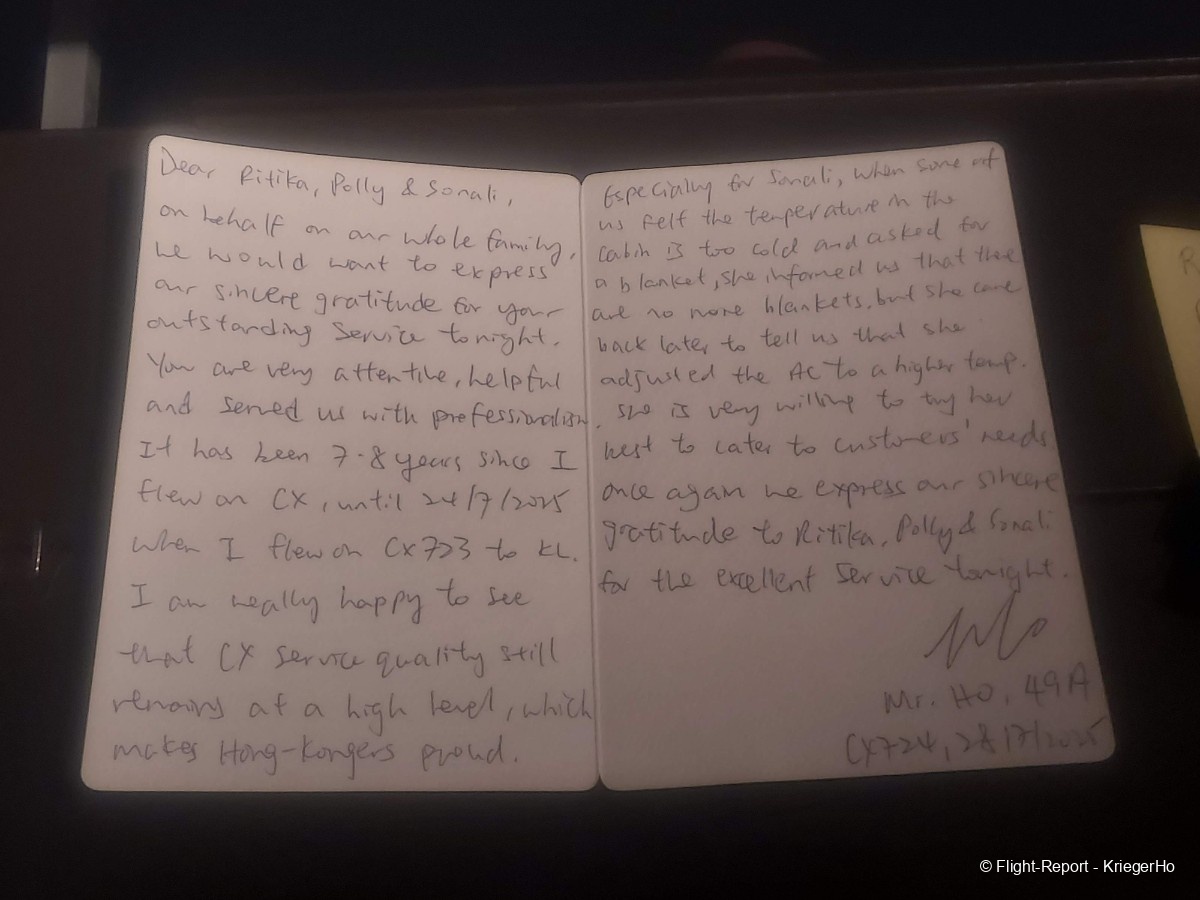 Dear Ritika, Polly & Sonali,
on behalf on our whole family,
we would want to express
our sincere gratitude for your
outstanding service tonight.
You are very attentive, helpful
and served us with professionalism.
It has been 7-8 years since I
flew on CX, until 24/7/2025
when I flew on CX723 to KL.
I am really happy to see
that CX service quality still
remains at a high level, which
makes Hong-Kongers proud.
Especially for Sonali, when some of
us felt the temperature in the
cabin is too cold and asked for
a blanket, she informed us that there
are no more blankets, but she came
back later to tell us that she
adjusted the AC to a higher temp.
She is very willing to try her
best to cater to customers' needs
once again we express our sincere
gratitude to Ritika, Polly & Sonali
for the excellent service tonight.
Mr. Ho, 49A
CX724, 28/7/2025
R
© Flight-Report - KriegerHo